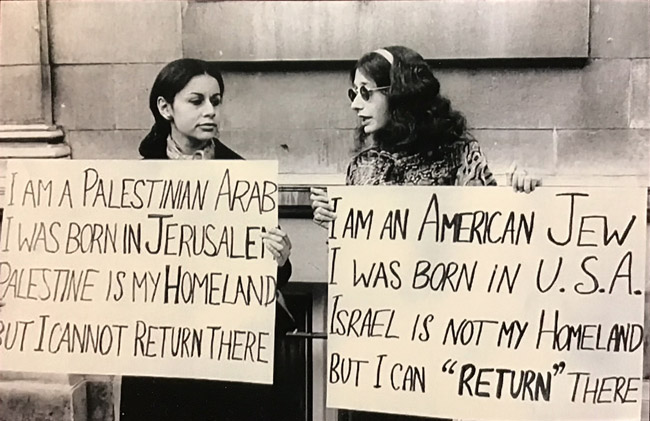 I AM A PALESTINIAN ARAB
I WAS BORN IN JERUSALEM
PALESTINE IS MY HOMELAND
BUT I CANNOT RETURN THERE
I AM AN AMERICAN JEW
I WAS BORN IN U.S.A.
ISRAEL IS NOT MY HOMELAND
BUT I CAN "RETURN" THERE